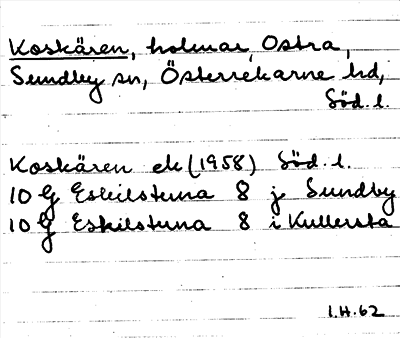 Koskären, holmar, Östra,
Sundby sn, Österrekarne hd,
Söd. l.
Koskären ek (1958) Söd. l.
10 G Eskilstuna 8 j Sundby
10 G Eskilstuna 8 i Kullersta
I.H. 62